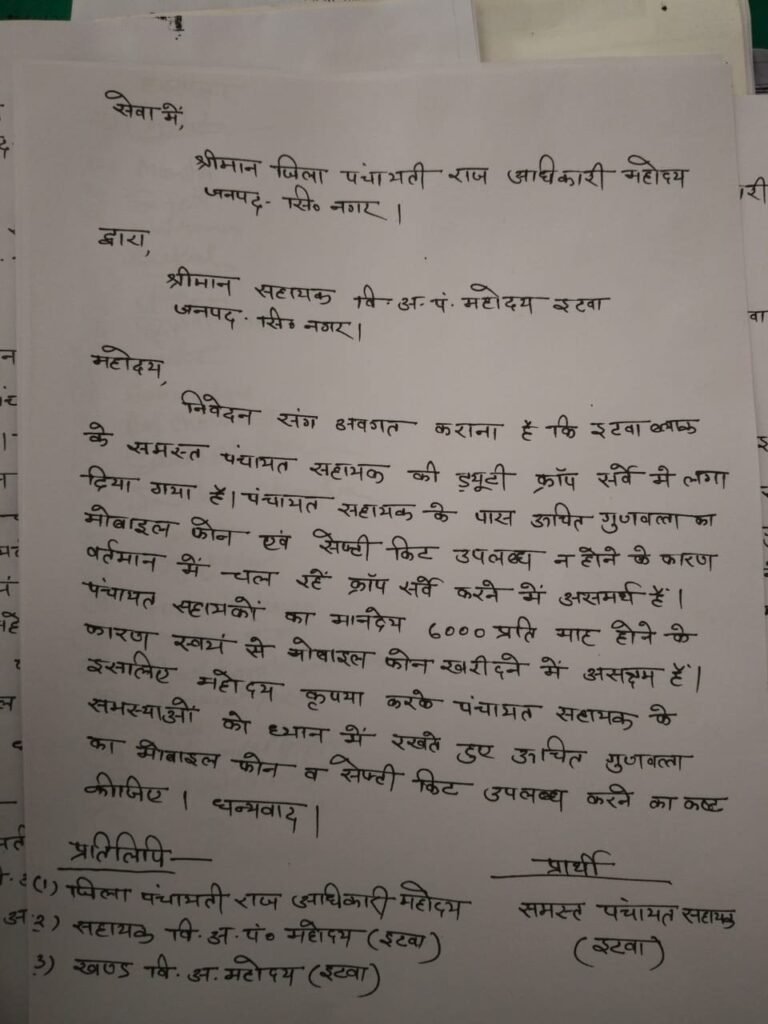 सेवा में,
श्रीमान जिला पंचायती राज अधिकारी महोदय
जनपद- सि० नगर।
द्वारा,
श्रीमान सहायक वि.अ.पं. महोदय इटवा
जनपद- सि० नगर।
महोदय,
निवेदन संग अवगत कराना है कि इटवा ब्लाक
के समस्त पंचायत सहायक की ड्यूटी क्रॉप सर्वे मे लगा
दिया गया है। पंचायत सहायक के पास ऊचित गुणवत्ता का
मोबाइल फोन एवं सेफ्टी किट उपलब्ध न होने के कारण
वर्तमान में चल रहें क्रॉप सर्वे करने में असमर्थ हैं।
पंचायत सहायकों का मानदेय 6000 प्रति माह होने के
कारण स्वयं से मोबाइल फोन खरीदने में असक्षम हैं।
इसलिए महोदय कृपया करके पंचायत सहायक के
समस्याओं को ध्यान में रखते हुए ऊचित गुणवत्ता
का मोबाइल फोन व सेफ्टी किट उपलब्ध करने का कष्ट
कीजिए। धन्यवाद।
प्रतिलिपि—
(1) जिला पंचायती राज अधिकारी महोदय
2) सहायक वि.अ.पं० महोदय (इटवा)
3) खण्ड वि.अ. महोदय (इटवा)
प्रार्थी
समस्त पंचायत सहायक
(इटवा)